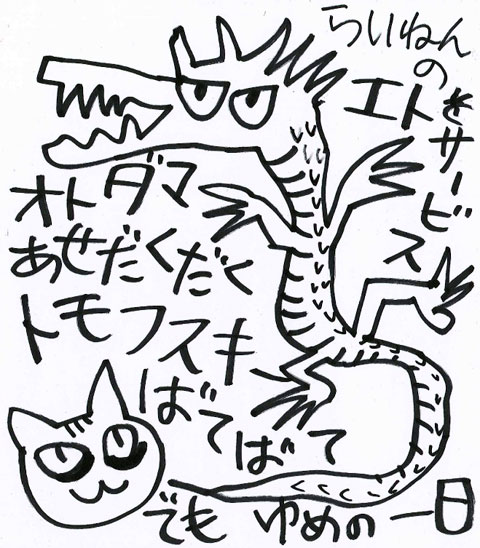 らいねん
の
エトを
サービス
オトダマ
あせだくだく
トモフスキー
ばてばて
でも ゆめの一日